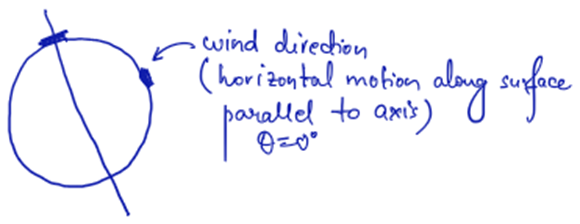 wind direction
(horizontal motion along surface
parallel to axis)
θ=0°